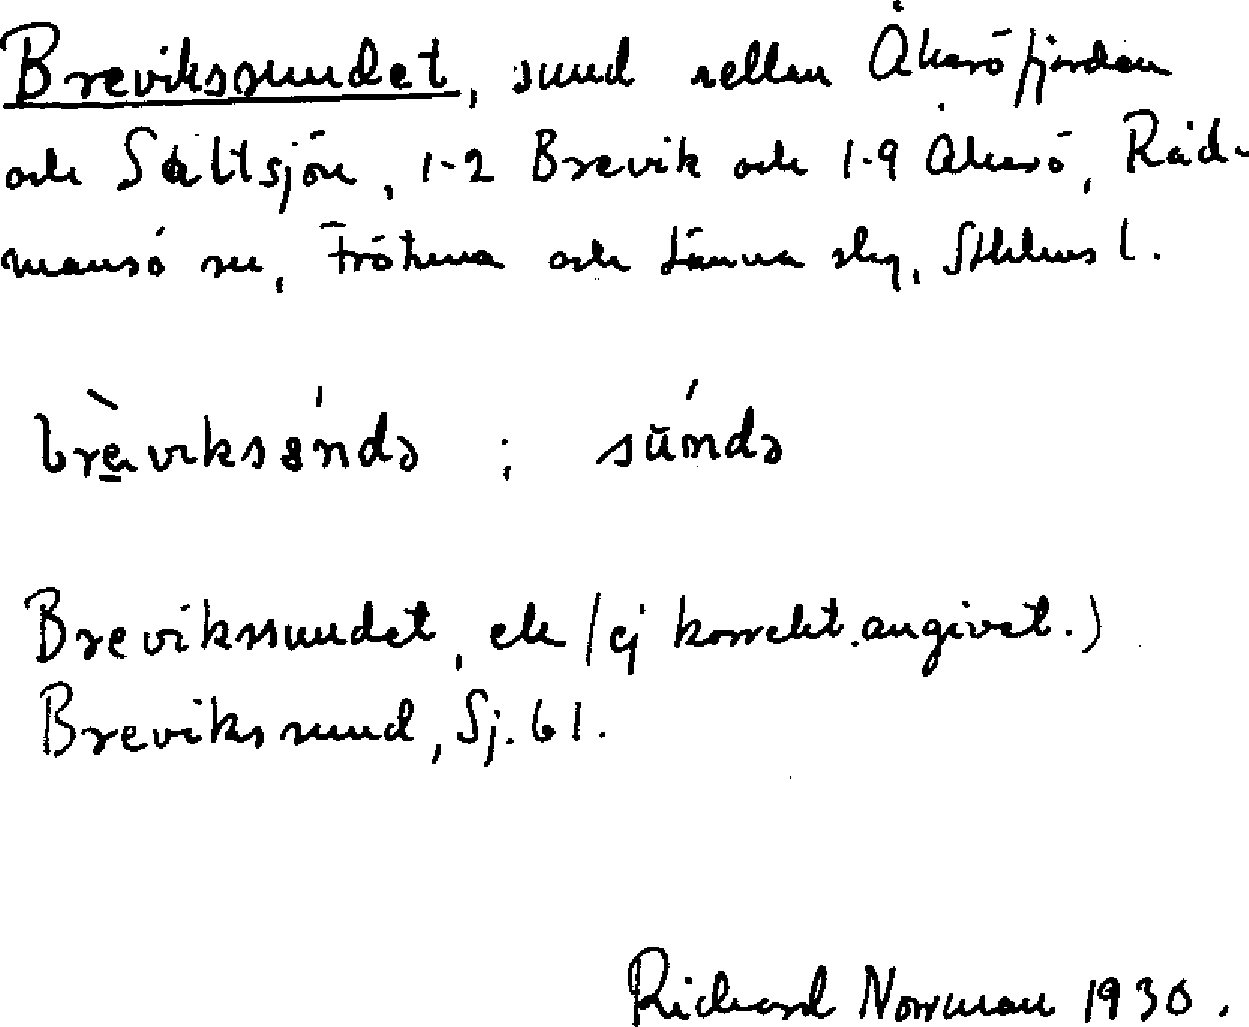 Brevikssundet, sund mellan Åkeröfjärden
och Saltsjön, 1-2 Brevik och 1-9 Åkerö, Råd-
mansö sn, Frötuna och Länna slg, Sthlms l.
brèviksándə ; sŭ́ndə
Brevikssundet, ek (ej korrekt angivet.)
Brevikssund, Sj. 61.
Richard Norrman 1930.